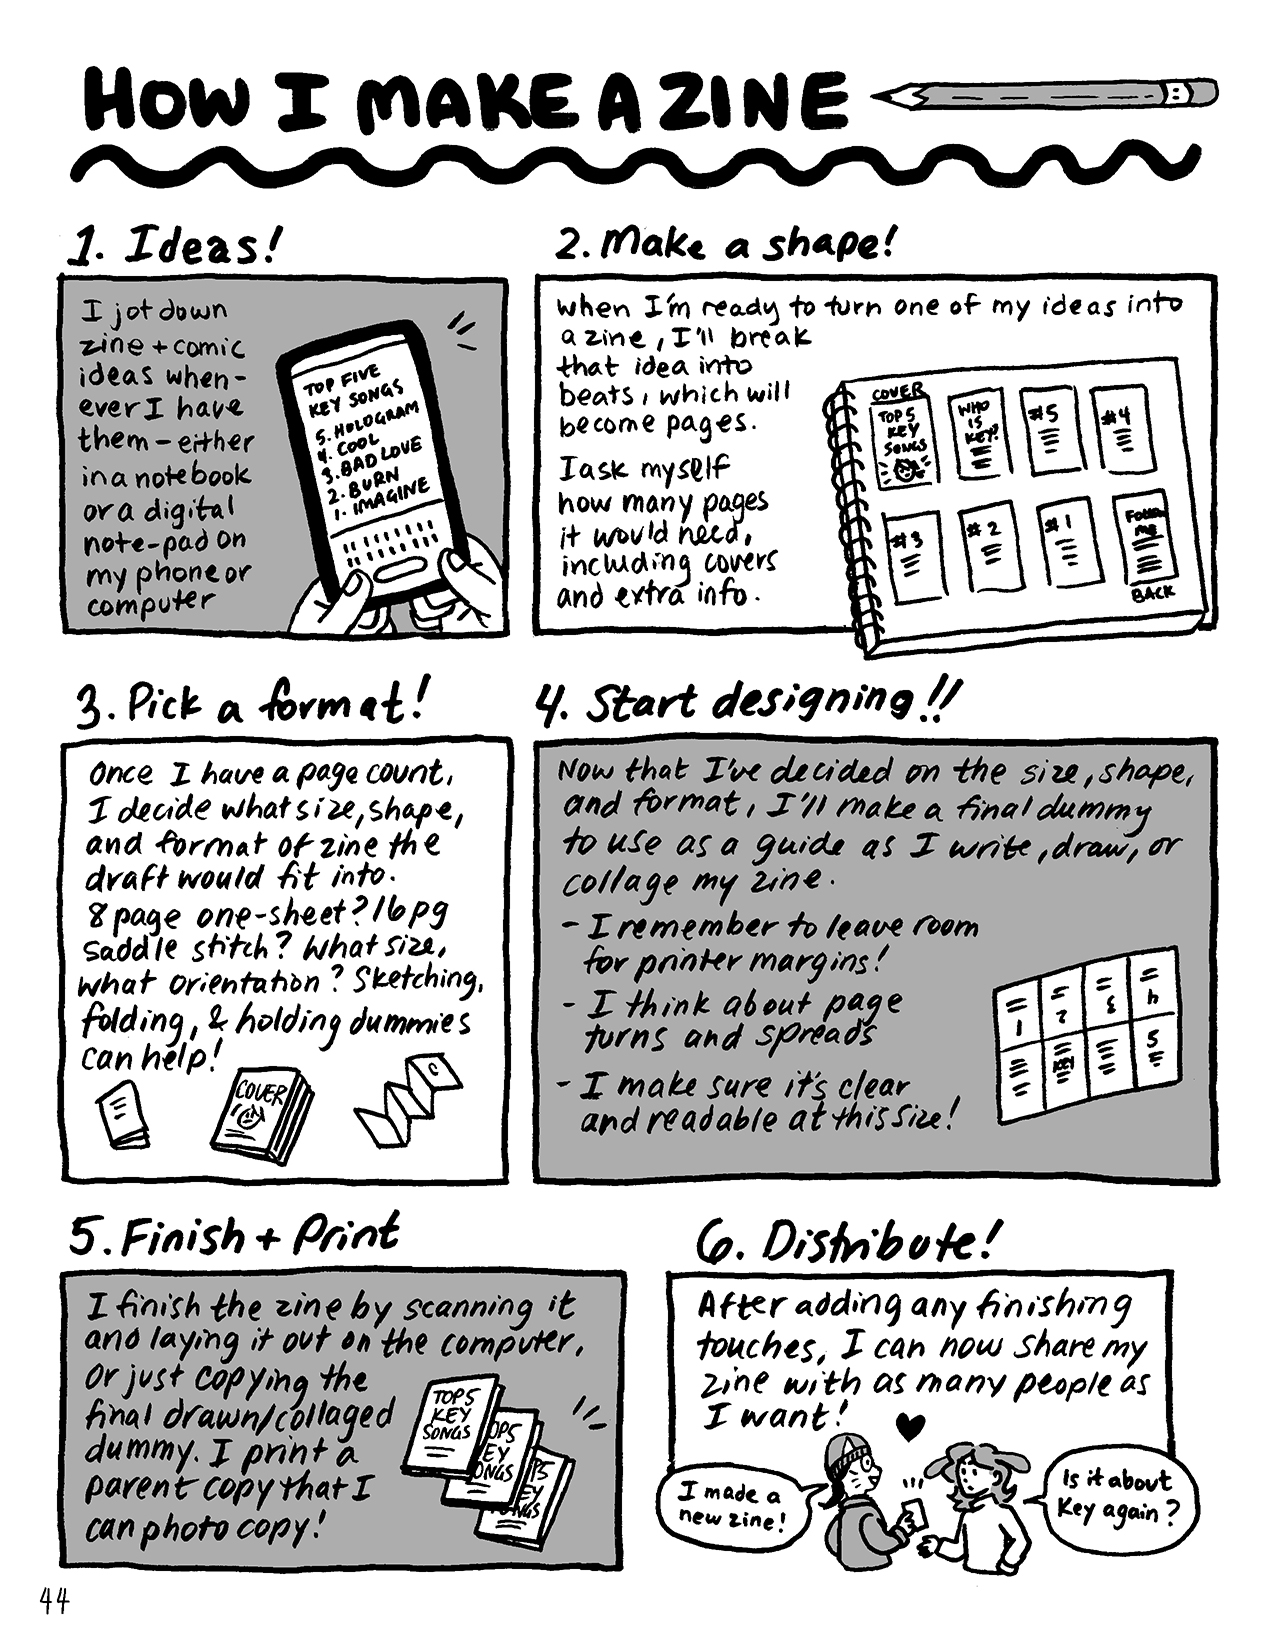 HOW I MAKE A ZINE
1. Ideas!
I jot down
zine + comic
ideas when-
ever I have
them - either
in a notebook
or a digital
note-pad on
my phone or
computer
TOP FIVE
KEY SONGS
5. HOLOGRAM
4. COOL
3. BAD LOVE
2. BURN
1. IMAGINE
2. Make a shape!
When I'm ready to turn one of my ideas into
a zine, I'll break
that idea into
beats, which will
become pages.
I ask myself
how many pages
it would need,
including covers
and extra info.
COVER
TOP 5
KEY
SONGS
WHO
IS
KEY?
#5
#4
#3
#2
#1
Follow
me
BACK
3. Pick a format!
Once I have a page count,
I decide what size, shape,
and format of zine the
draft would fit into.
8 page one-sheet? 16pg
saddle stitch? What size,
what orientation? Sketching,
folding, & holding dummies
can help!
COVER
C
4. Start designing!!
Now that I've decided on the size, shape,
and format, I'll make a final dummy
to use as a guide as I write, draw, or
collage my zine.
- I remember to leave room
for printer margins!
- I think about page
turns and spreads
- I make sure it's clear
and readable at this size!
1
2
3
4
KEY
5
5. Finish + Print
I finish the zine by scanning it
and laying it out on the computer,
Or just copying the
final drawn/collaged
dummy. I print a
parent copy that I
can photo copy!
TOP 5
KEY
SONGS
OP5
EY
ONGS
P5
EY
NGS
6. Distribute!
After adding any finishing
touches, I can now share my
zine with as many people as
I want!
I made a
new zine!
Is it about
Key again?
44